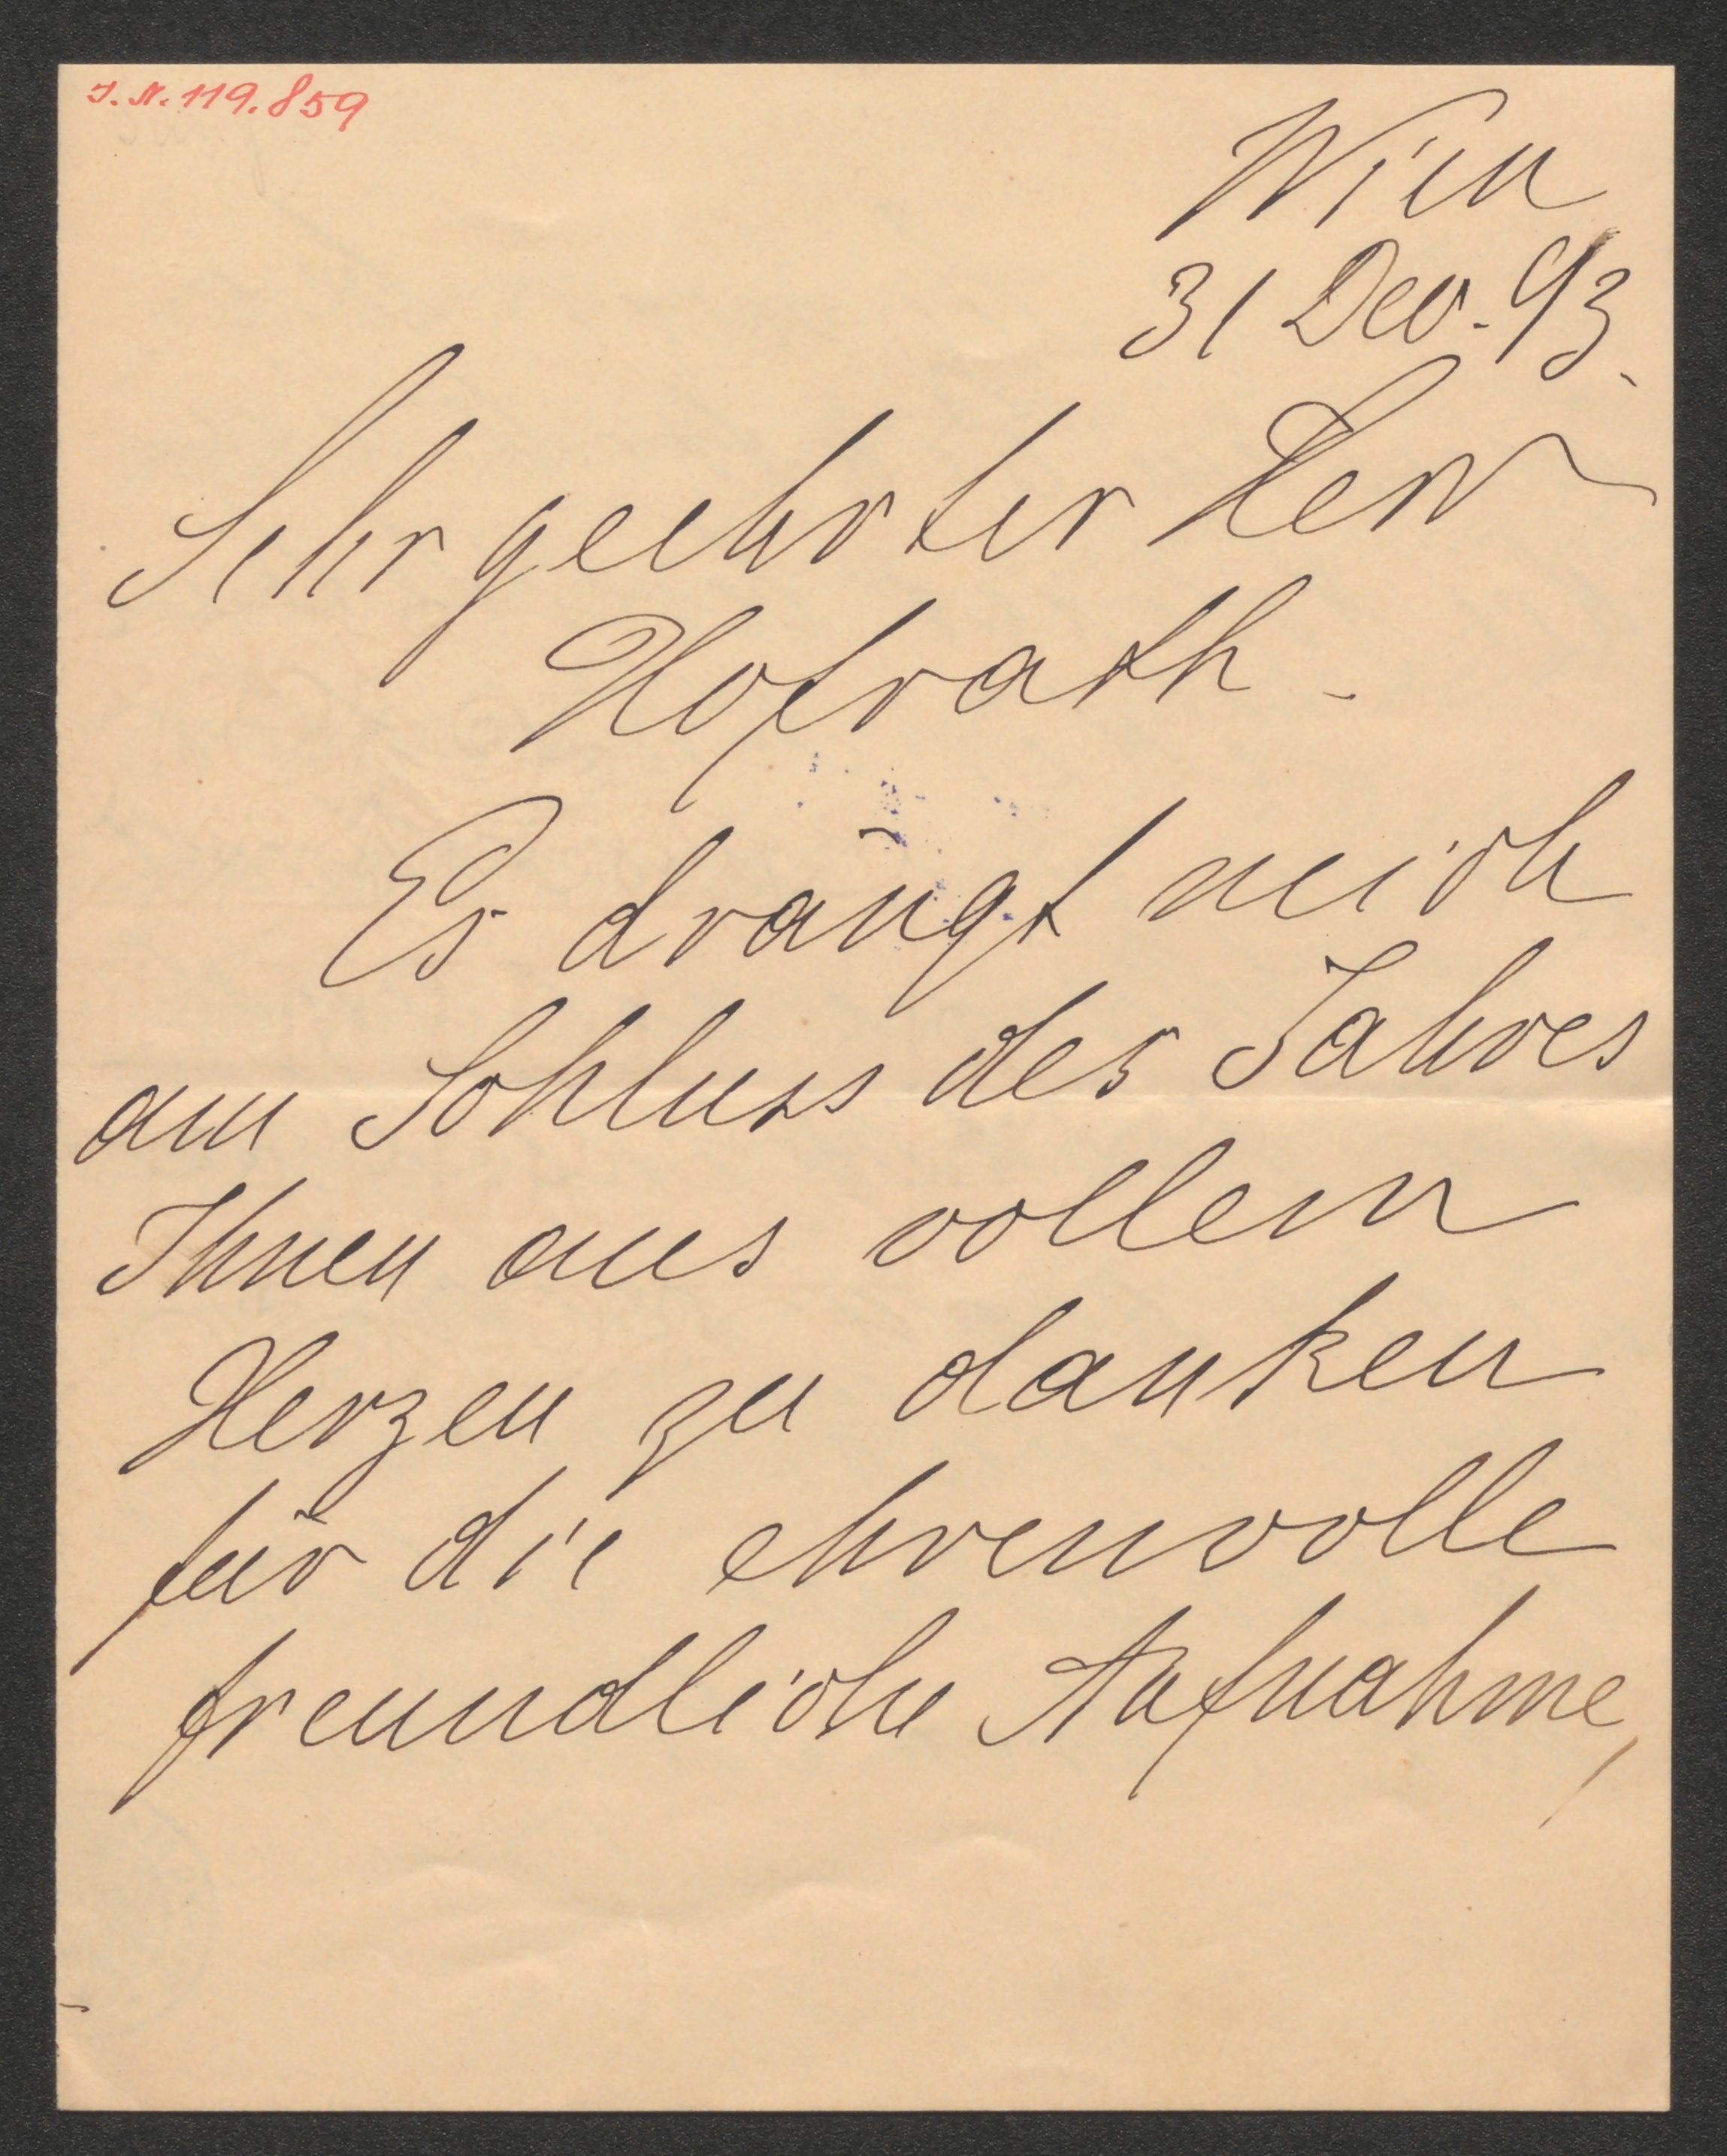 J. N. 119.859
Wien
31 Dec. 93.
Sehr geehrter Herr
Hofrath -
Es drängt mich
am Schluss des Jahres
Ihnen aus vollem
Herzen zu danken
für die ehrenvolle
freundliche Aufnahme,